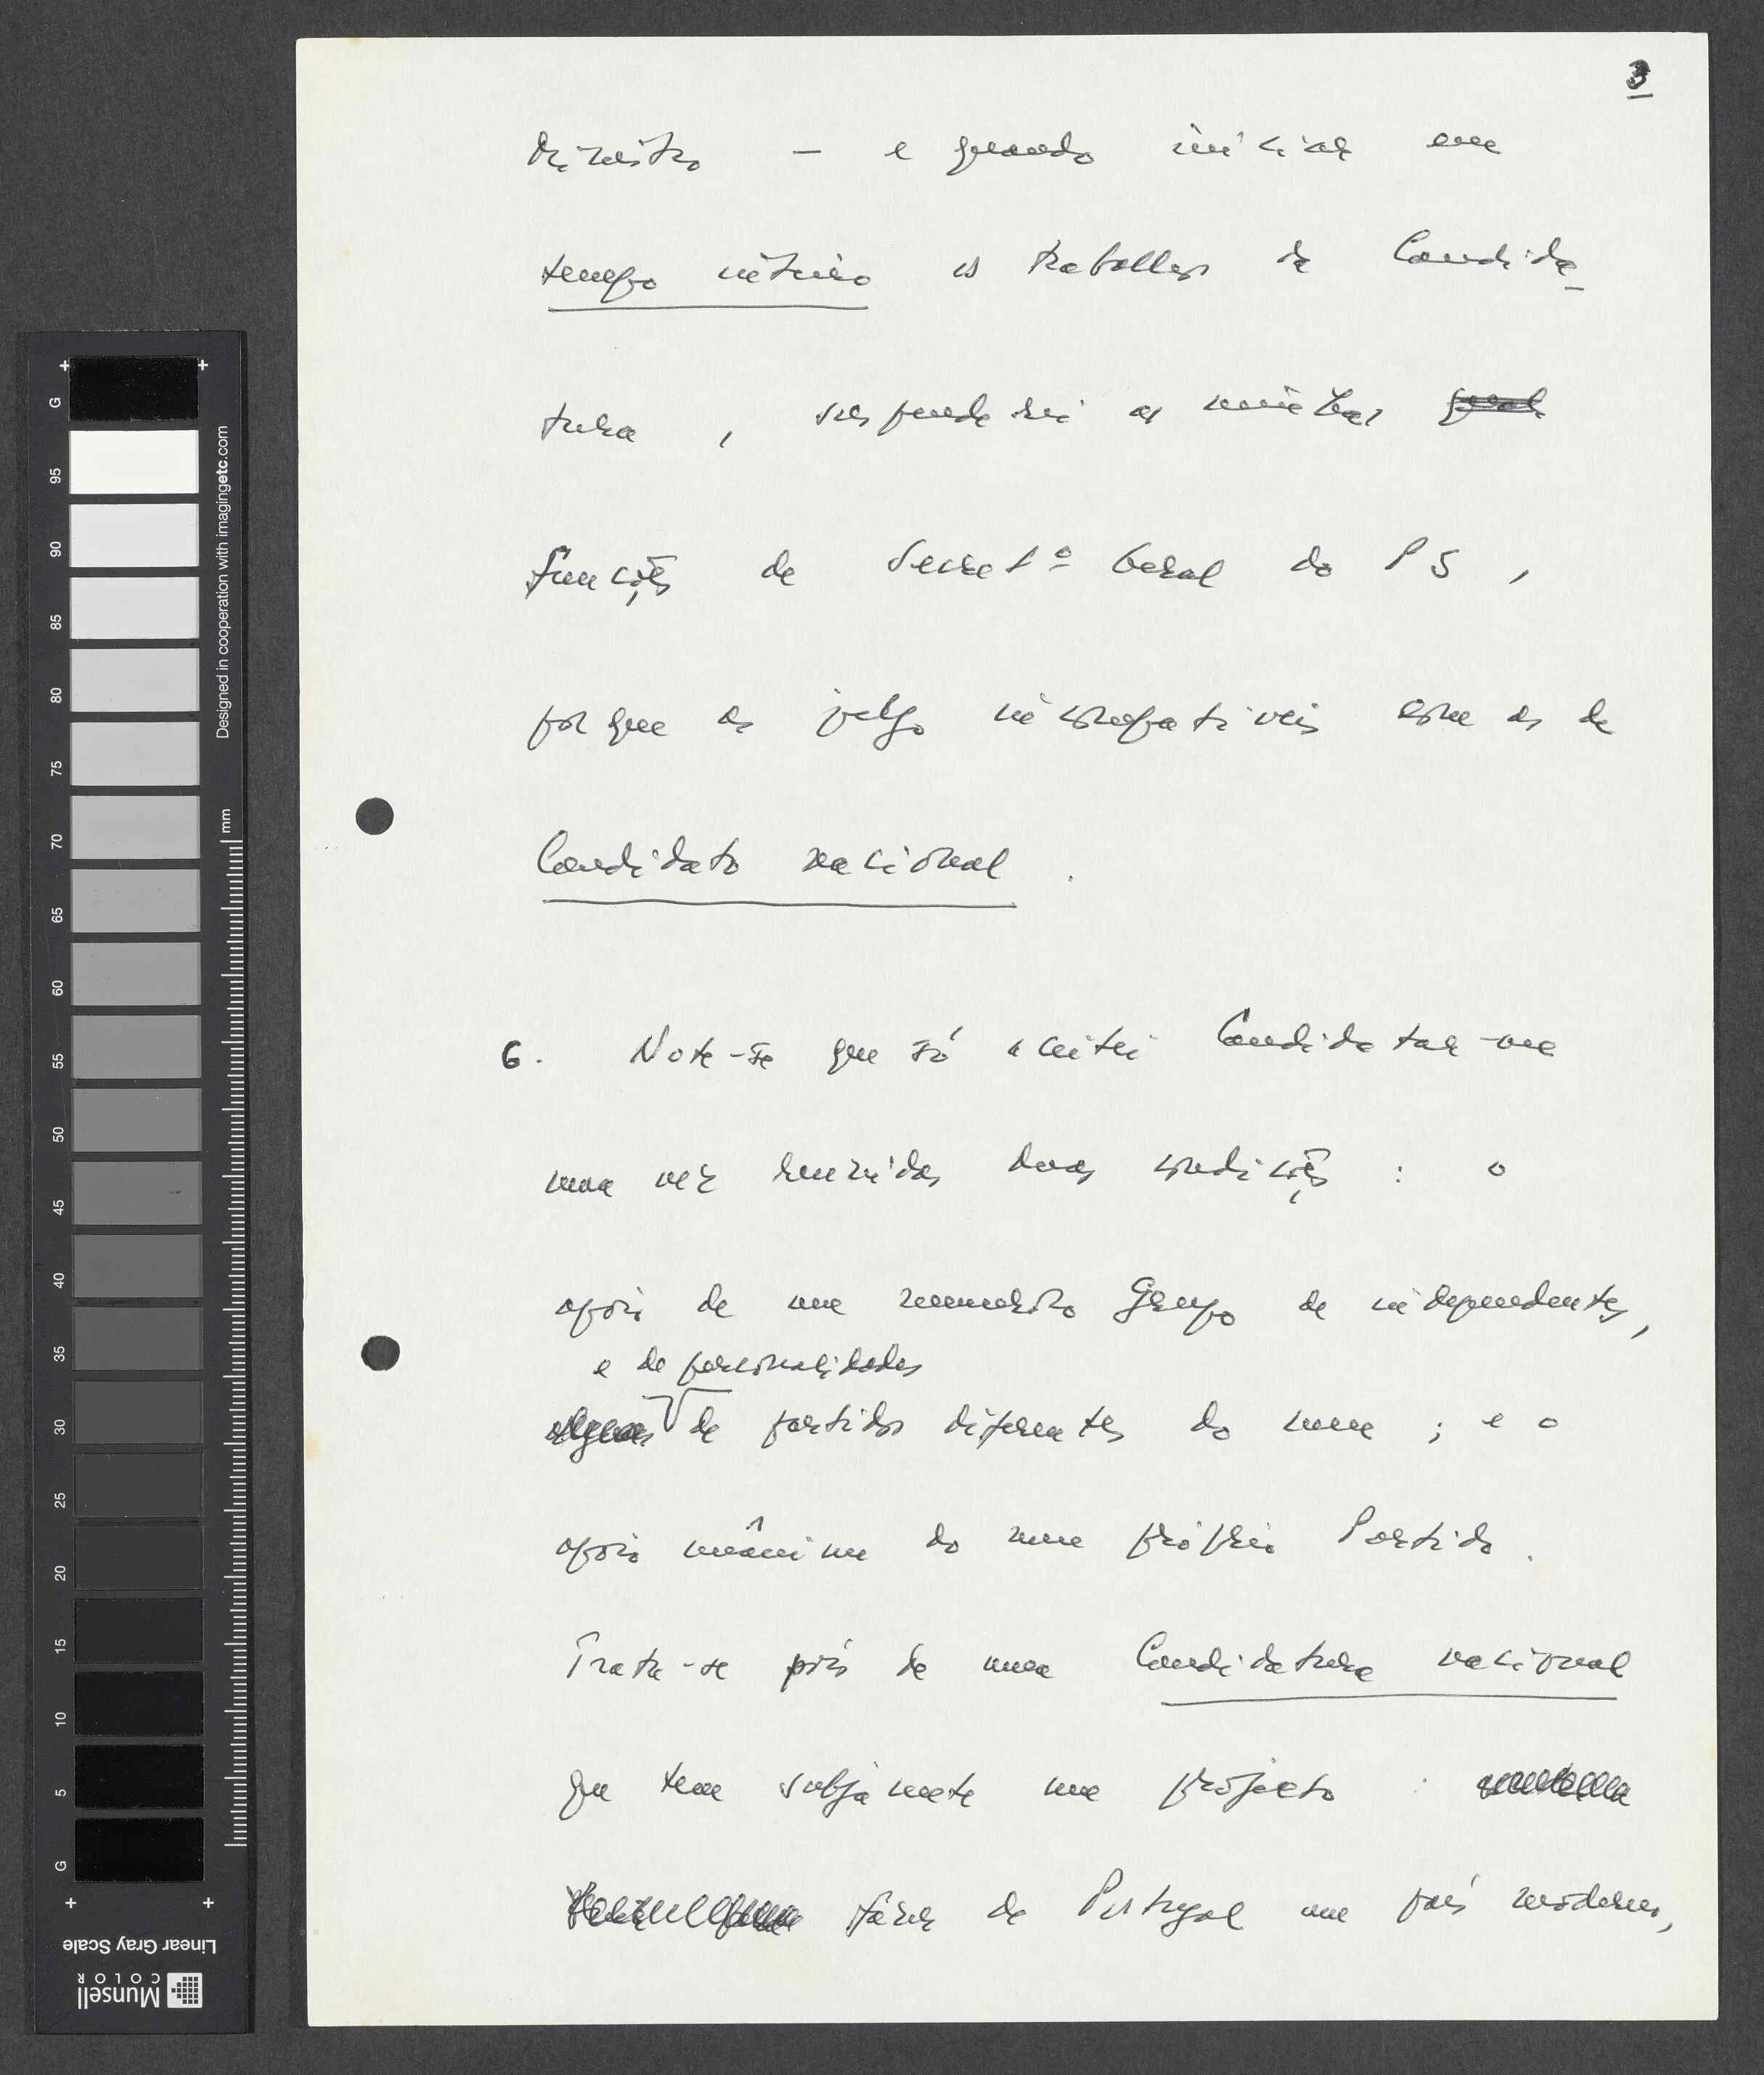 3
Ministro – e quando iniciar em
tempo inteiro os trabalhos da Candida-
tura, suspenderei as minhas
funções de Secretº Geral do PS,
porque as julgo incompatíveis com as de
Candidato nacional.
6. Note-se que só aceitei Candidatar-me
uma vez reunidas duas condições: o
apoio de um numeroso Grupo de independentes,
e de personalidades
de partidos diferentes do meu; e o
apoio unânime do meu próprio Partido.
Trata-se pois de uma Candidatura nacional
que tem subjacente um projecto:
fazer de Portugal um país moderno,
G
95
90
85
80
75
70
65
60
55
50
45
40
35
30
25
20
15
10
5
G
mm
Designed in cooperation with imagingetc.com
Linear Gray Scale
Munsell
COLOR